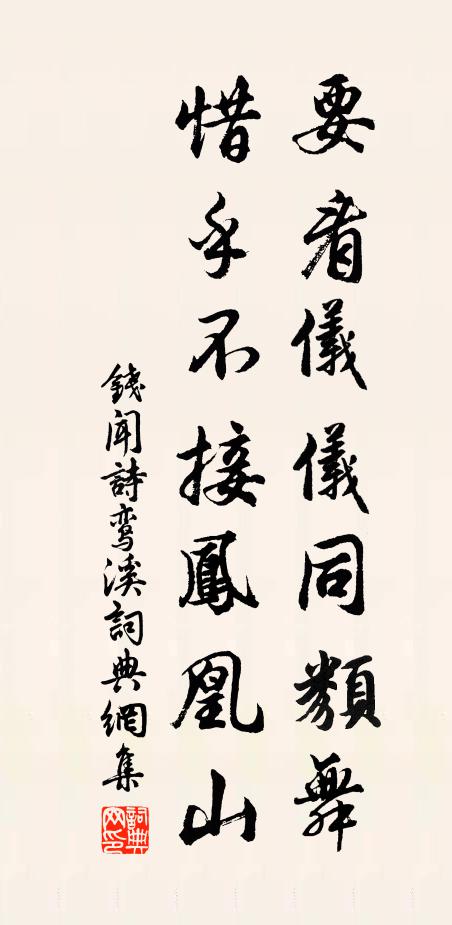 要看儀儀同類舞
惜乎不接鳳凰山
錢聞詩鸾溪詞典網集
詞典
网印